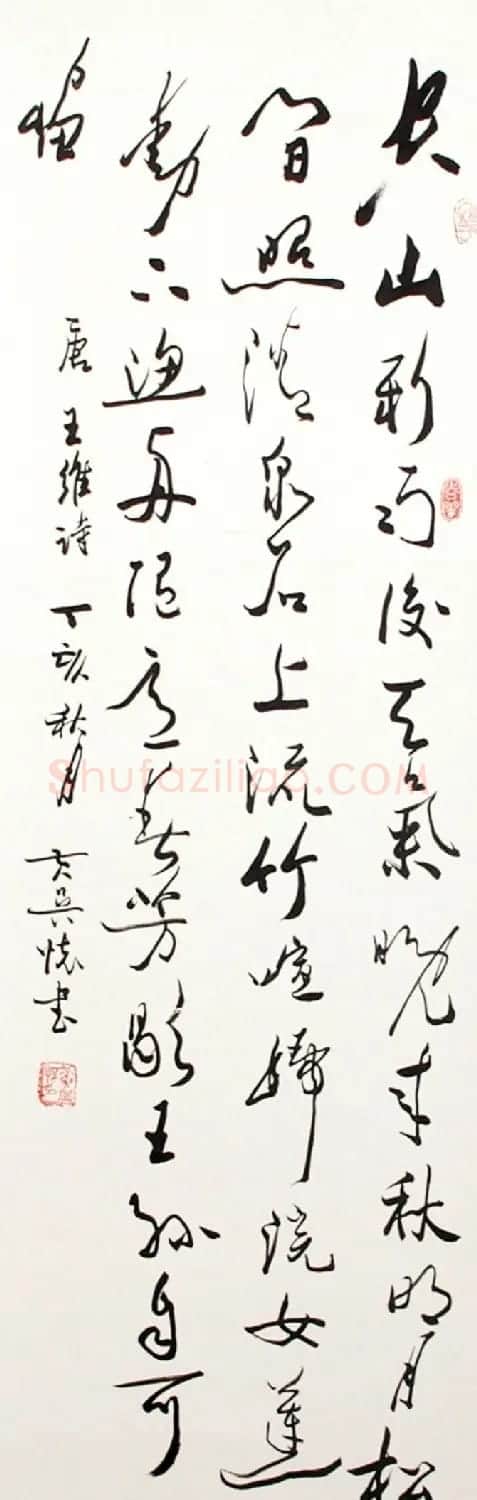 空山新雨後天氣晚来秋明月松
间照清泉石上流竹喧歸浣女蓮
動下漁舟随意春芳歇王孙自可
留
唐王維诗丁亥秋月吴懷书
Shufaziliao.COM